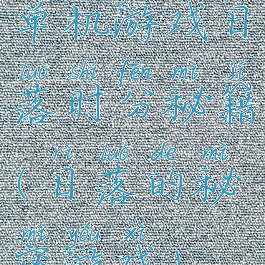 单机游戏日
luò shí fēn mì jí
落时分秘籍
rì luò de mì
(日落的秘
mì yóu xì